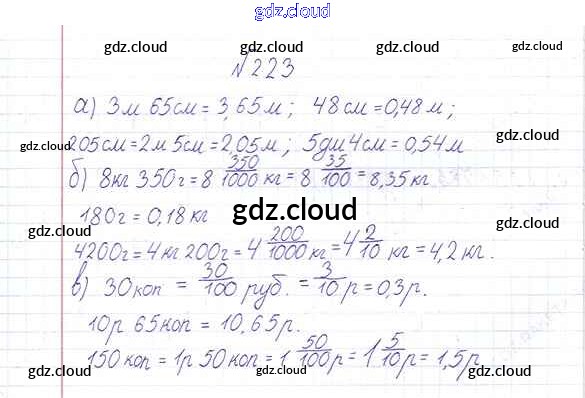 gdz.cloud
gdz.cloud gdz.cloud gdz.cloud
№ 223
а) 3м 65см = 3,65м; 48см = 0,48м;
gdz.cloud gdz.cloud
205см = 2м 5см = 2,05м; 5дм 4см = 0,54м
б) 8кг 350г = 8 350/1000 кг = 8 35/100 = 8,35кг
180г = 0,18кг
gdz.cloud gdz.cloud gdz.cloud
4200г = 4кг 200г = 4 200/1000 кг = 4 2/10 кг = 4,2кг.
в) 30коп = 30/100 руб. = 3/10 р = 0,3р.
10р 65коп = 10,65р.
150коп = 1р 50коп = 1 50/100 р = 1 5/10 р = 1,5р
gdz.cloud gdz.cloud gdz.cloud